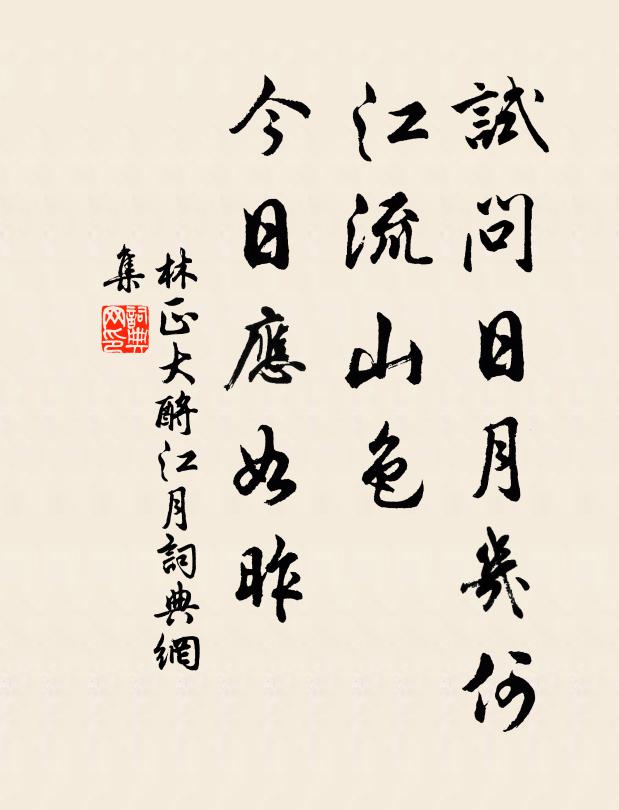 試問日月幾何
江流山色
今日應如昨
林正大酹江月詞典網
集
詞典
网印